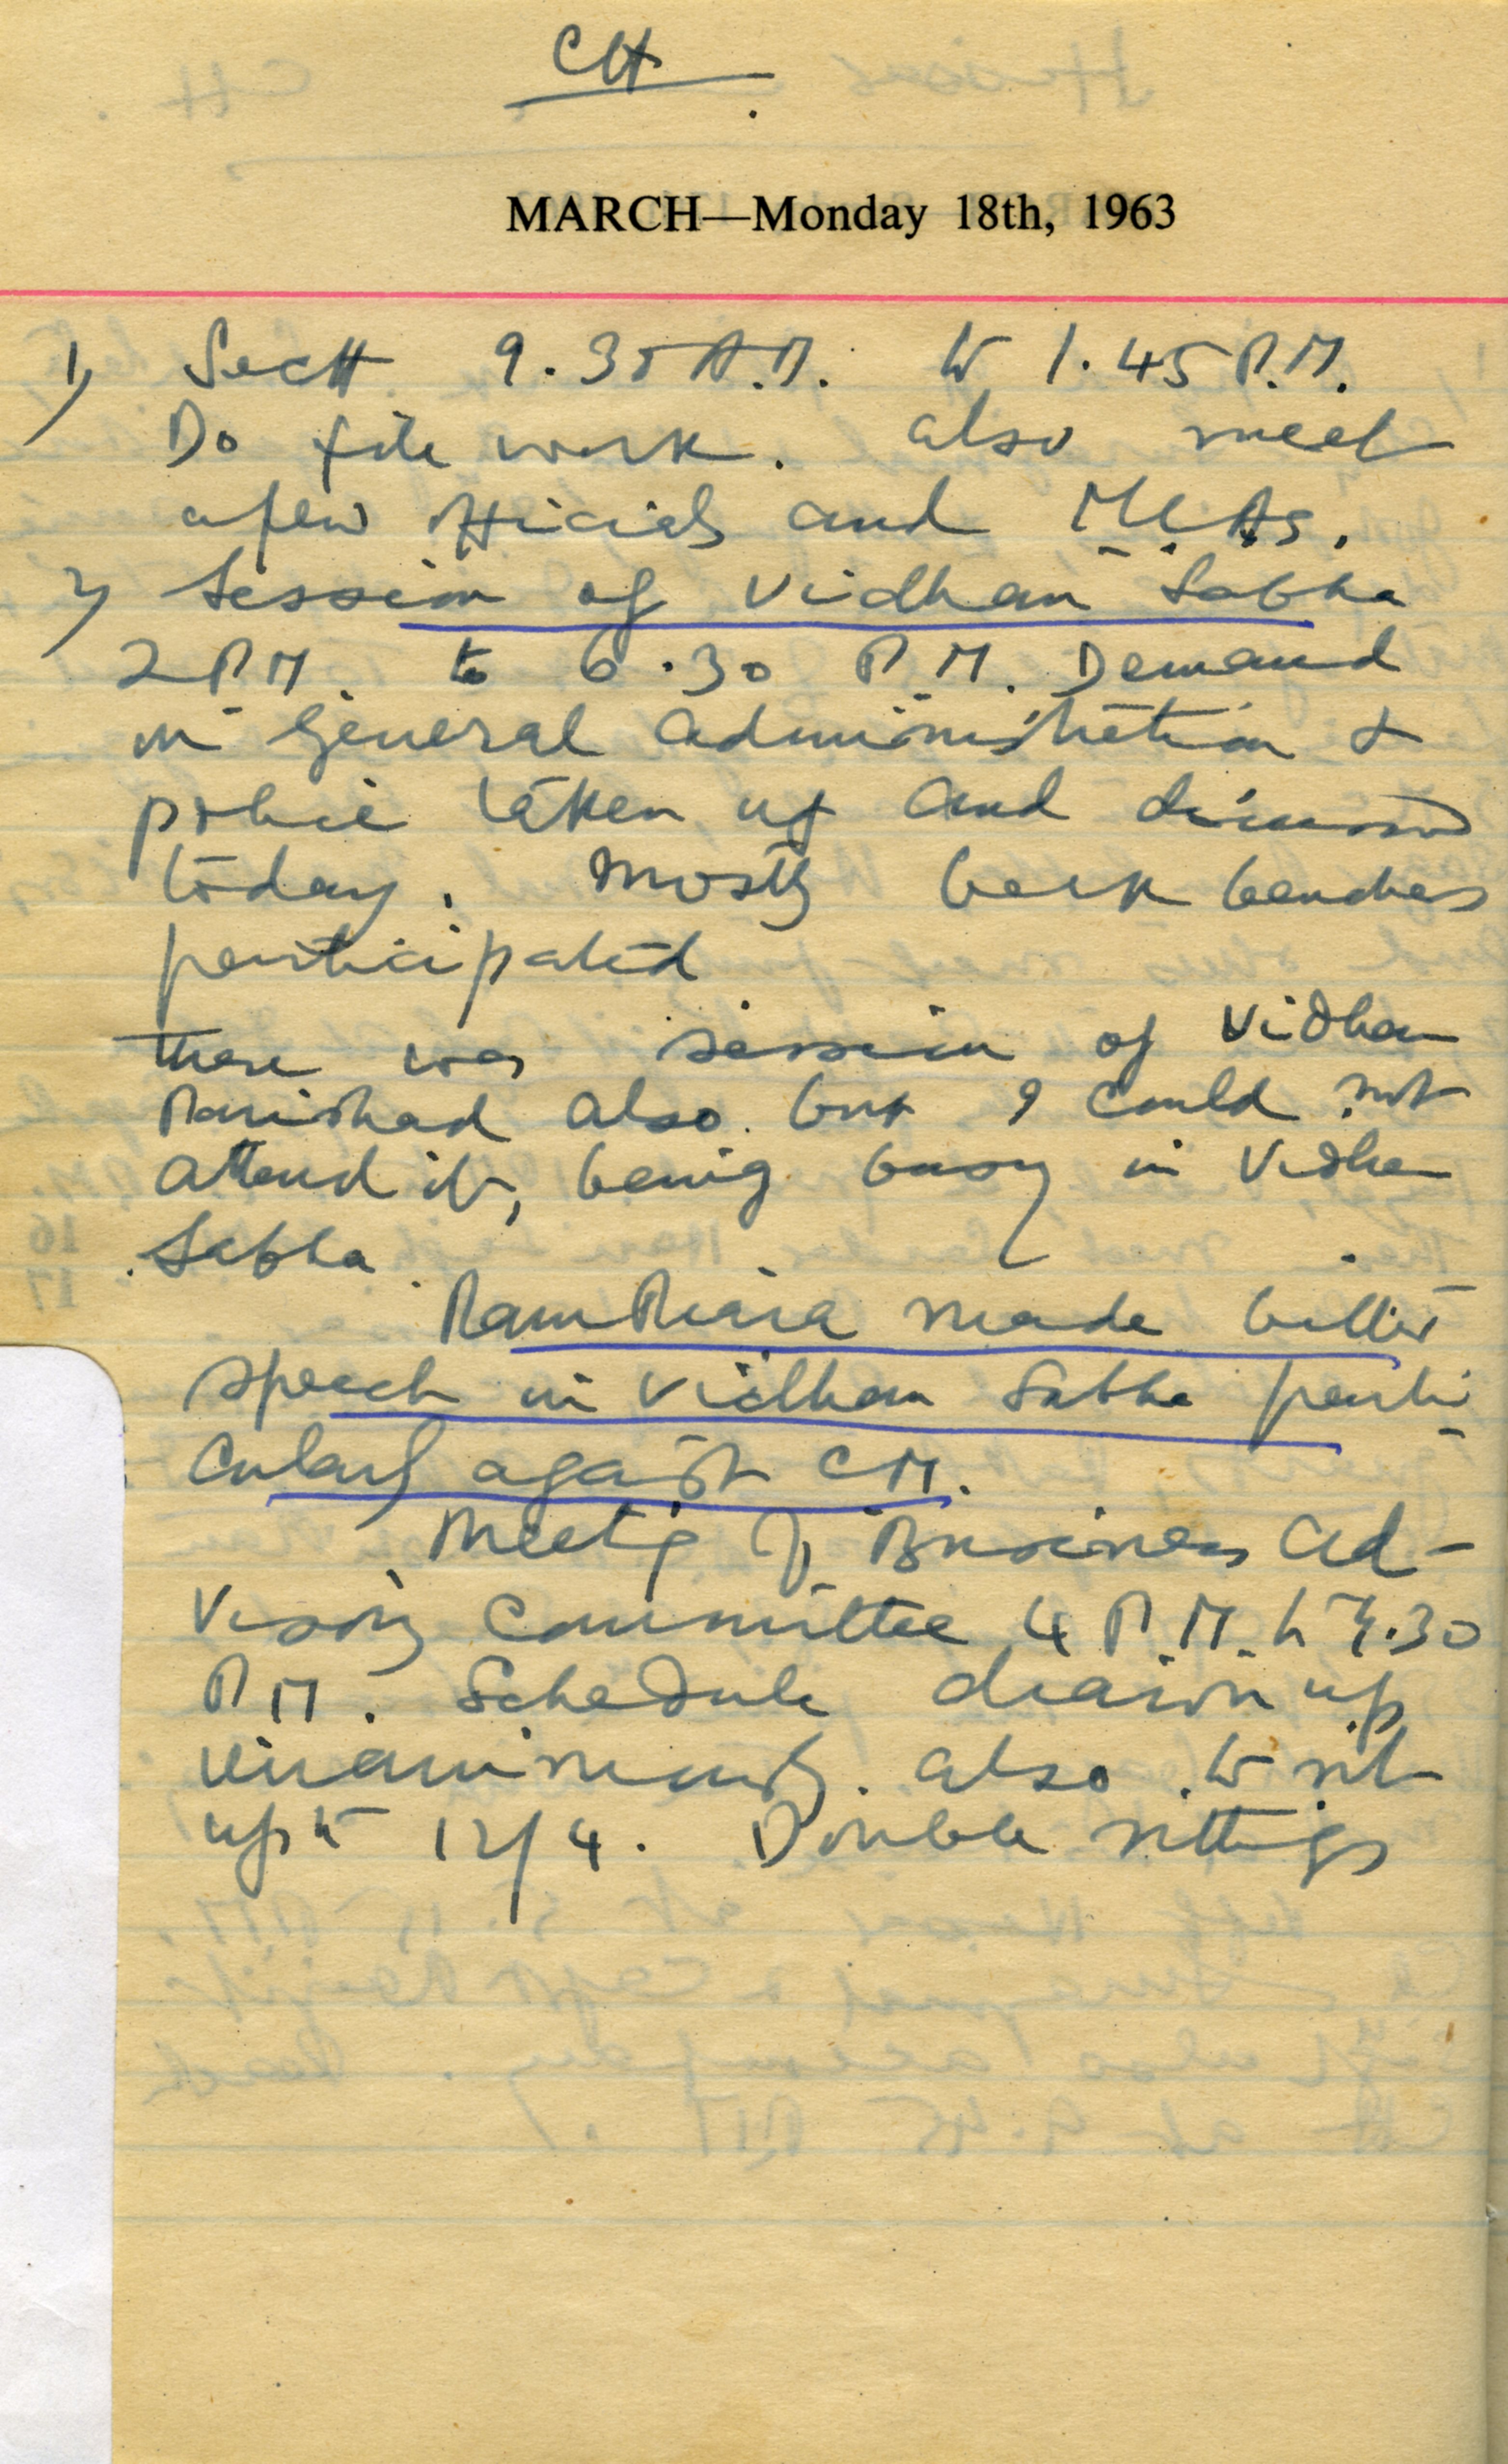 CH
MARCH—Monday 18th, 1963
1) Sectt 9.30 A.M. to 1.45 P.M.
Do file work. also meet
a few officials and M.L.As.
2) Session of Vidhan Sabha
2 P.M. to 6.30 P.M. Demand
on General administration &
police taken up and discussed
today. Mostly back benches
participated
there was session of Vidhan
Parishad also but I could not
attend it, being busy in Vidhan
Sabha.
Ram Piara made bitter
speech in Vidhan Sabha parti
cularly against CM.
Meeting of Business Ad-
visory Committee 4 P.M. to 4.30
P.M. Schedule drawn up
unanimously. also to sit
upto 12/4. Double sittings